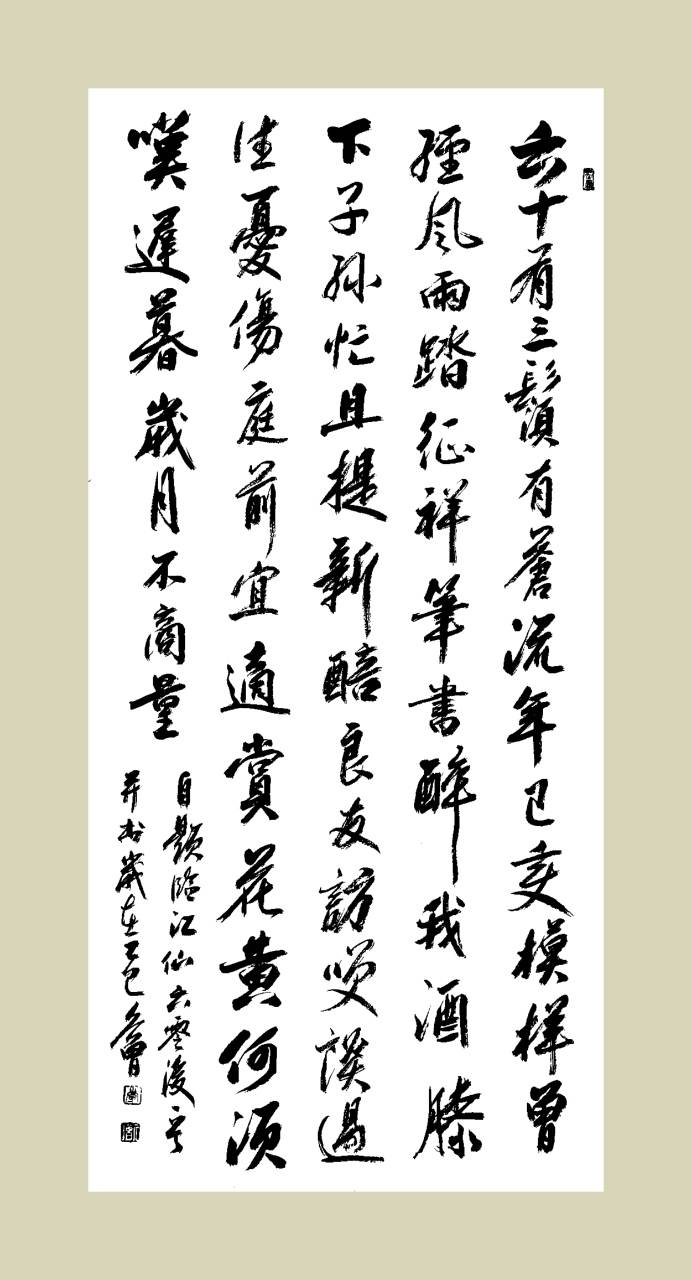 六十有三鬚有蒼流年已变模樣曾
經風雨踏征祥筆書醉我酒膝
下子孫忙且提新醅良友訪笑談過
往憂傷庭前宜適賞花黄何須
嘆遲暮歲月不商量
自題臨江仙六零後
并書歲在乙巳